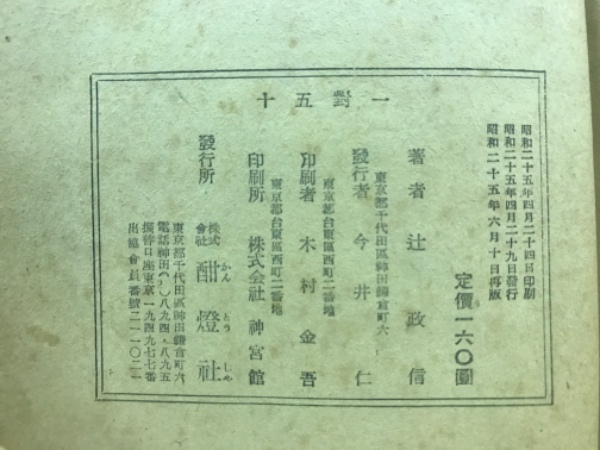 一對五十
昭和二十五年四月二十四日印刷
昭和二十五年四月二十九日發行
昭和二十五年六月十日再版
定價一六〇圓
著者 辻政信
東京都千代田區神田鎌倉町六
發行者 今井仁
東京都台東區西町二番地
印刷者 木村金吾
東京都台東區西町二番地
印刷所 株式会社 神宮館
發行所 株式會社 酣燈社
かんとうしや
東京都千代田區神田鎌倉町六
電話神田(25)八九四・八九五
振替口座東京一九四九七七番
出協會員番號二一一〇二一